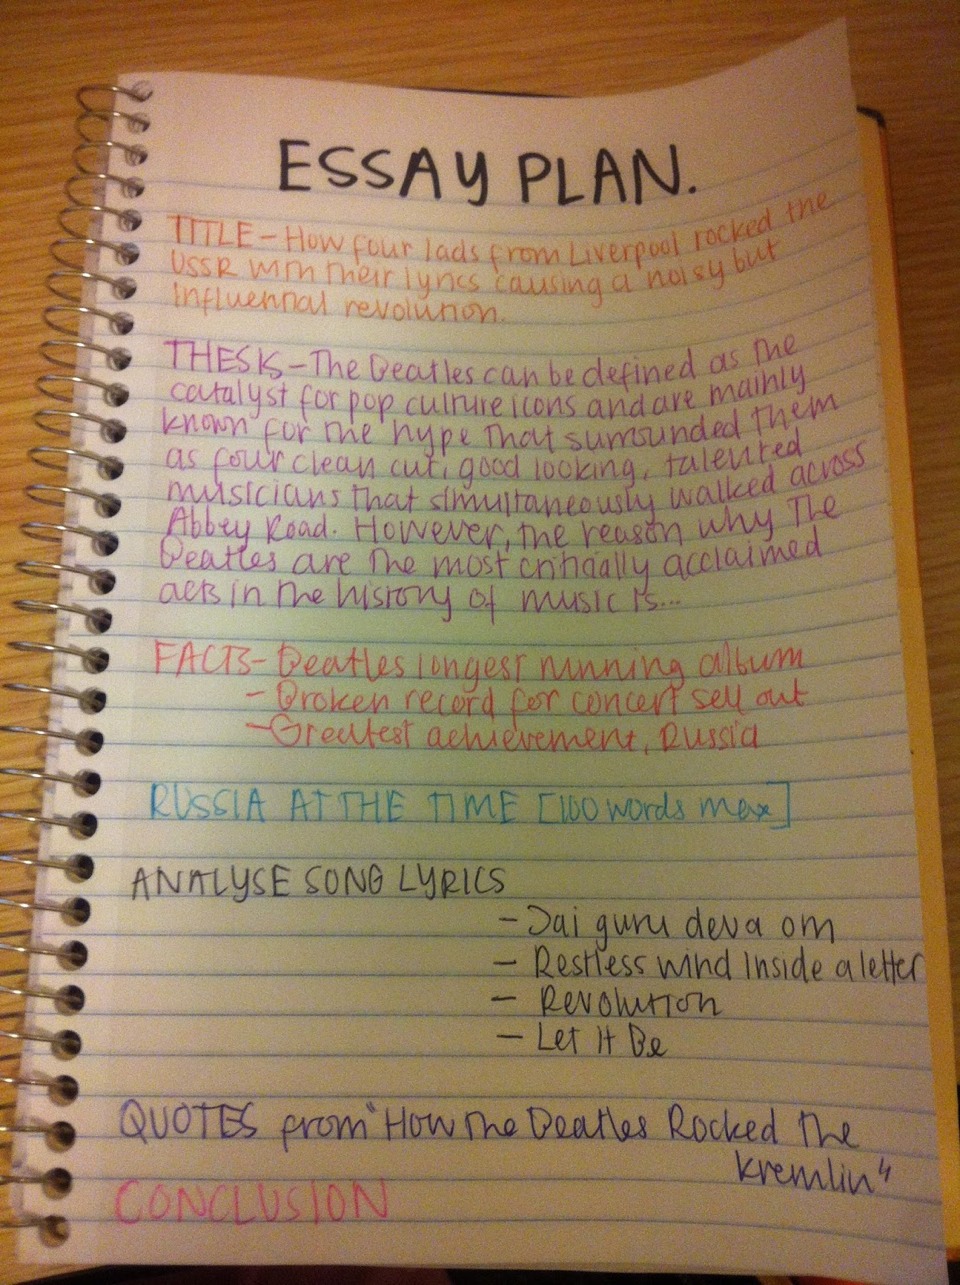 ESSAY PLAN.
TITLE - How four lads from Liverpool rocked the
USSR with their lyrics causing a noisy but
Influential revolution.
THESIS - The Beatles can be defined as the
catalyst for pop culture icons and are mainly
known for the hype that surrounded them
as four clean cut, good looking, talented
musicians that simultaneously walked across
Abbey Road. However, the reason why The
Beatles are the most critically acclaimed
acts in the history of music is...
FACTS - Beatles longest running album
- Broken record for concert sell out
- Greatest achievement, Russia
RUSSIA AT THE TIME [100 words max]
ANALYSE SONG LYRICS
- Jai guru deva om
- Restless wind inside a letter
- Revolution
- Let It Be
QUOTES from "How the Beatles Rocked The
Kremlin"
CONCLUSION